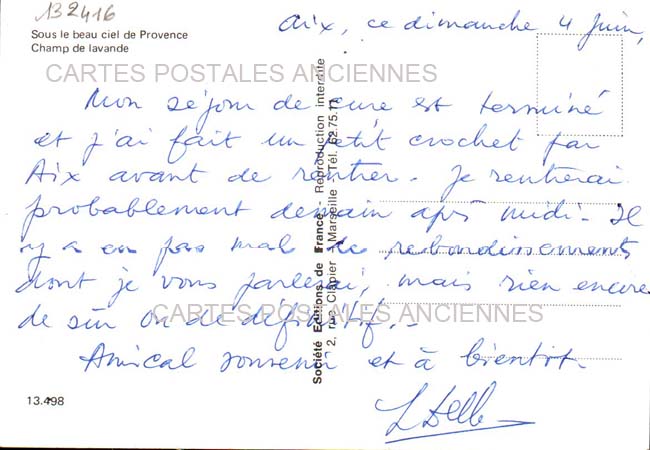 132416
Sous le beau ciel de Provence
Champ de lavande
Aix, ce dimanche 4 Juin,
CARTES POSTALES ANCIENNES
Mon séjour de cure est terminé
et j'ai fait un petit crochet par
Aix avant de rentrer. Je rentrerai
probablement demain après midi. Il
y a eu pas mal de rebondissements
dont je vous parlerai, mais rien encore
CARTES POSTALES ANCIENNES
de sûr ou de définitif.-
Amical souvenir et à bientôt.
Société Editions de France - Reproduction interdite
2, rue Clapier - Marseille - Tél. 62.75.11
13.498